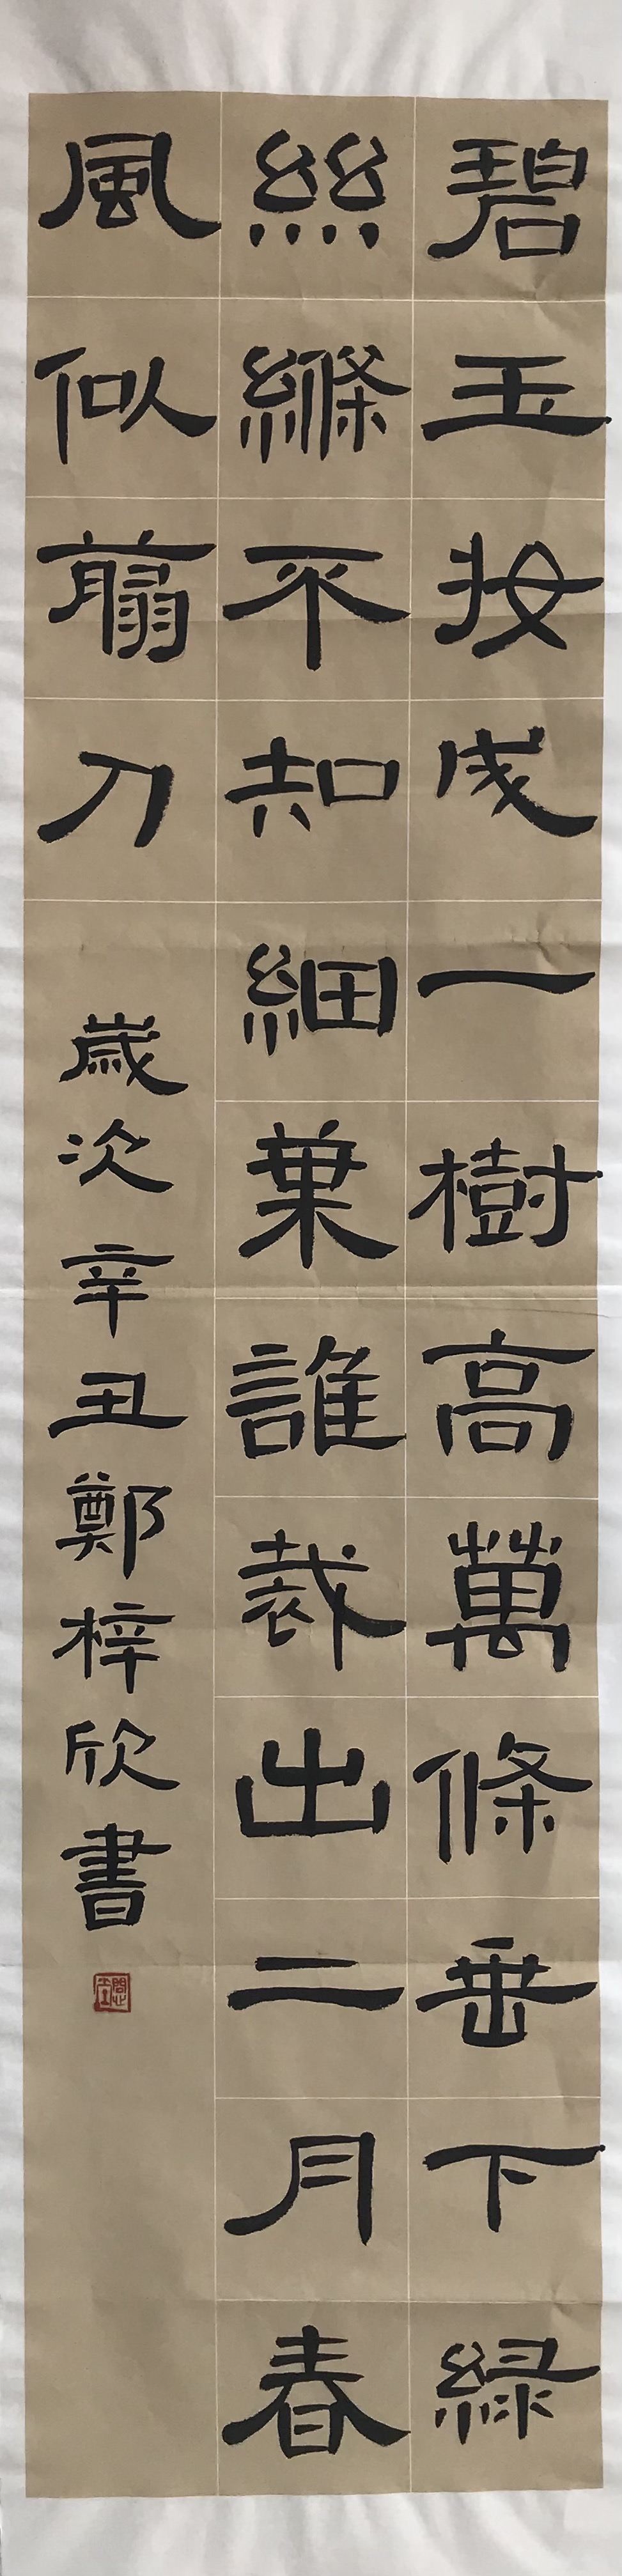 碧玉妝成一樹高萬條垂下綠
絲縧不知細葉誰裁出二月春
風似翦刀
歲次辛丑鄭梓欣書